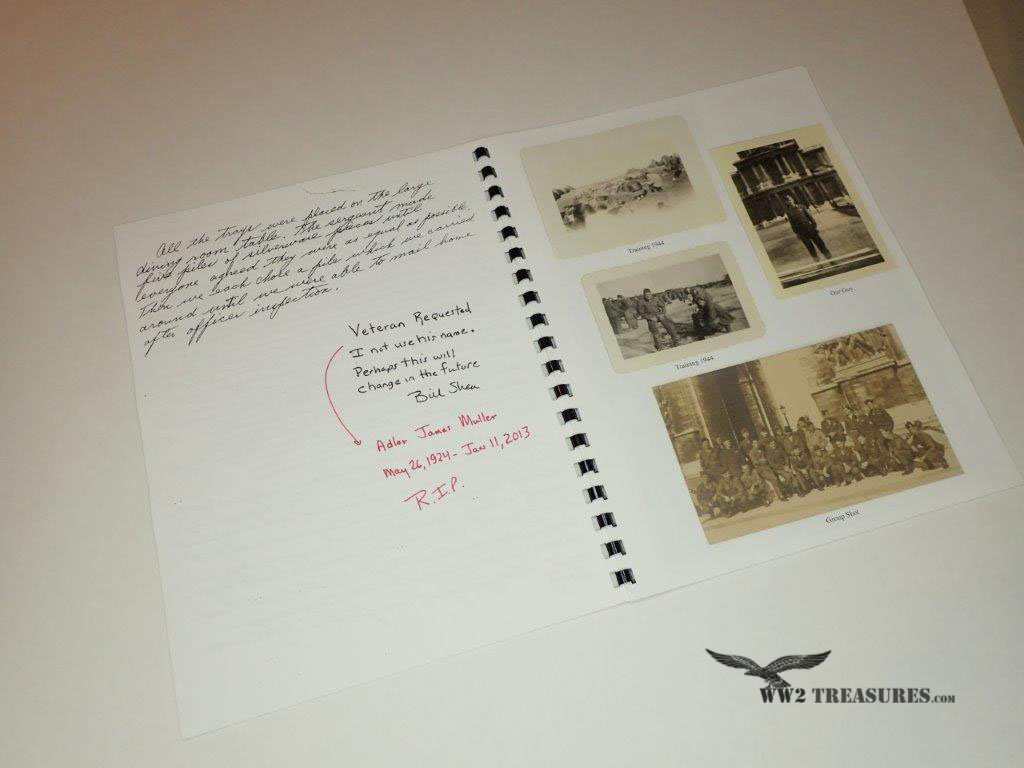 All the trays were placed on the large
dining room table. The sergeant made
five piles of silverware pieces until
everyone agreed they were as equal as possible.
Then we each chose a pile which we carried
around until we were able to mail home
after officer inspection.
Veteran Requested
I not use his name.
Perhaps this will
change in the future
Bill Shea
Adler James Muller
May 26, 1924 - Jan 11, 2013
R.I.P.
Training 1944
Our Guy
Training 1944
Group Shot
WW2 TREASURES.COM